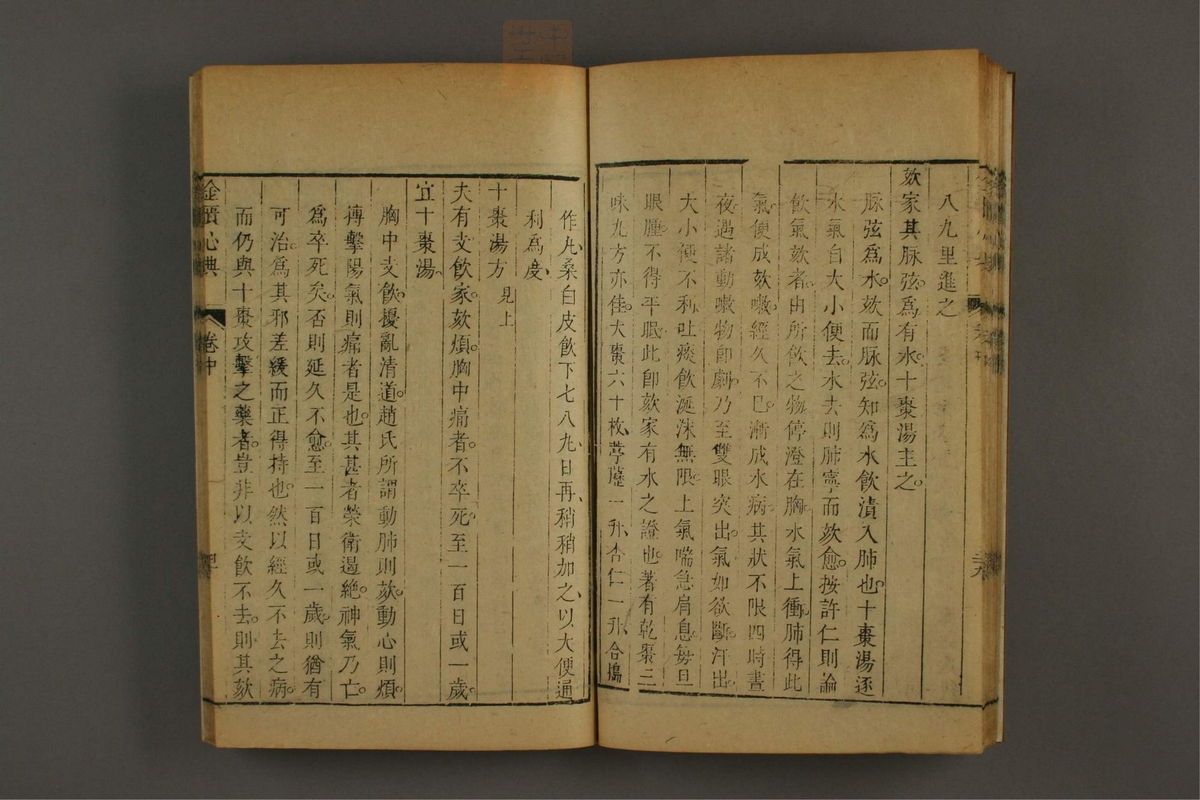 八九里進之
欬家其脉弦爲有水十棗湯主之
脉弦爲水欬而脉弦知爲水飲漬入肺也十棗湯逐
水氣自大小便去水去則肺寧而欬愈按許仁則論
飲氣欬者由所飲之物停澄在胸水氣上衝肺得此
氣便成欬嗽經久不已漸成水病其狀不限四時晝
夜遇諸動嗽物卽劇乃至雙眼突出氣如欲斷汗出
大小便不利吐痰飲涎沫無限上氣喘急肩息每旦
眼腫不得平眠此卽欬家有水之證也著有乾棗三
味丸方亦佳大棗六十枚葶藶一升杏仁一升合搗
作丸桑白皮飲下七八丸日再稍稍加之以大便通
利爲度
十棗湯方 見上
夫有支飲家欬煩胸中痛者不卒死至一百日或一歲
宜十棗湯
胸中支飲擾亂清道趙氏所謂動肺則欬動心則煩
搏擊陽氣則痛者是也其甚者榮衛遏絶神氣乃亡
爲卒死矣否則延久不愈至一百日或一歲則猶有
可治爲其邪差緩而正得持也然以經久不去之病
而仍與十棗攻擊之藥者豈非以支飲不去則其欬
金匱心典 卷中